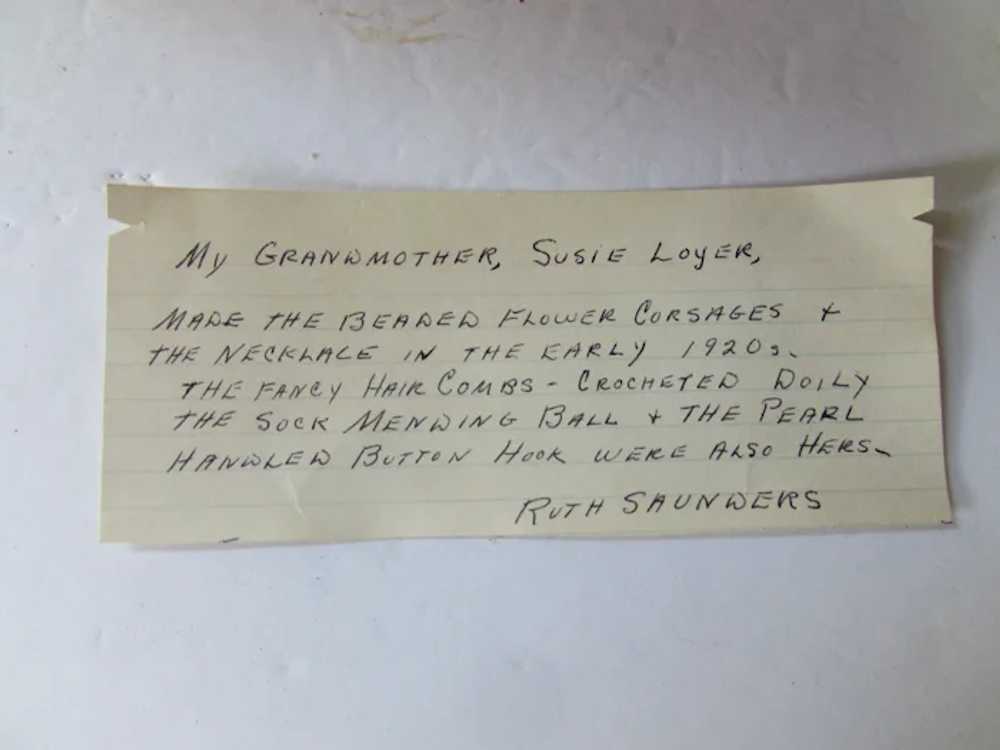 My GRANDMOTHER, SUSiE LOyER,
MADE THE BEADED FLOWER CORSAGES +
THE NECKLACE IN THE EARLY 1920s.
THE FANCY HAIR COMBS - CROCHETED DOILY
THE SOCK MENDING BALL + THE PEARL
HANDLED BUTTON HOOK WERE ALSO HERS.
RUTH SAUNDERS